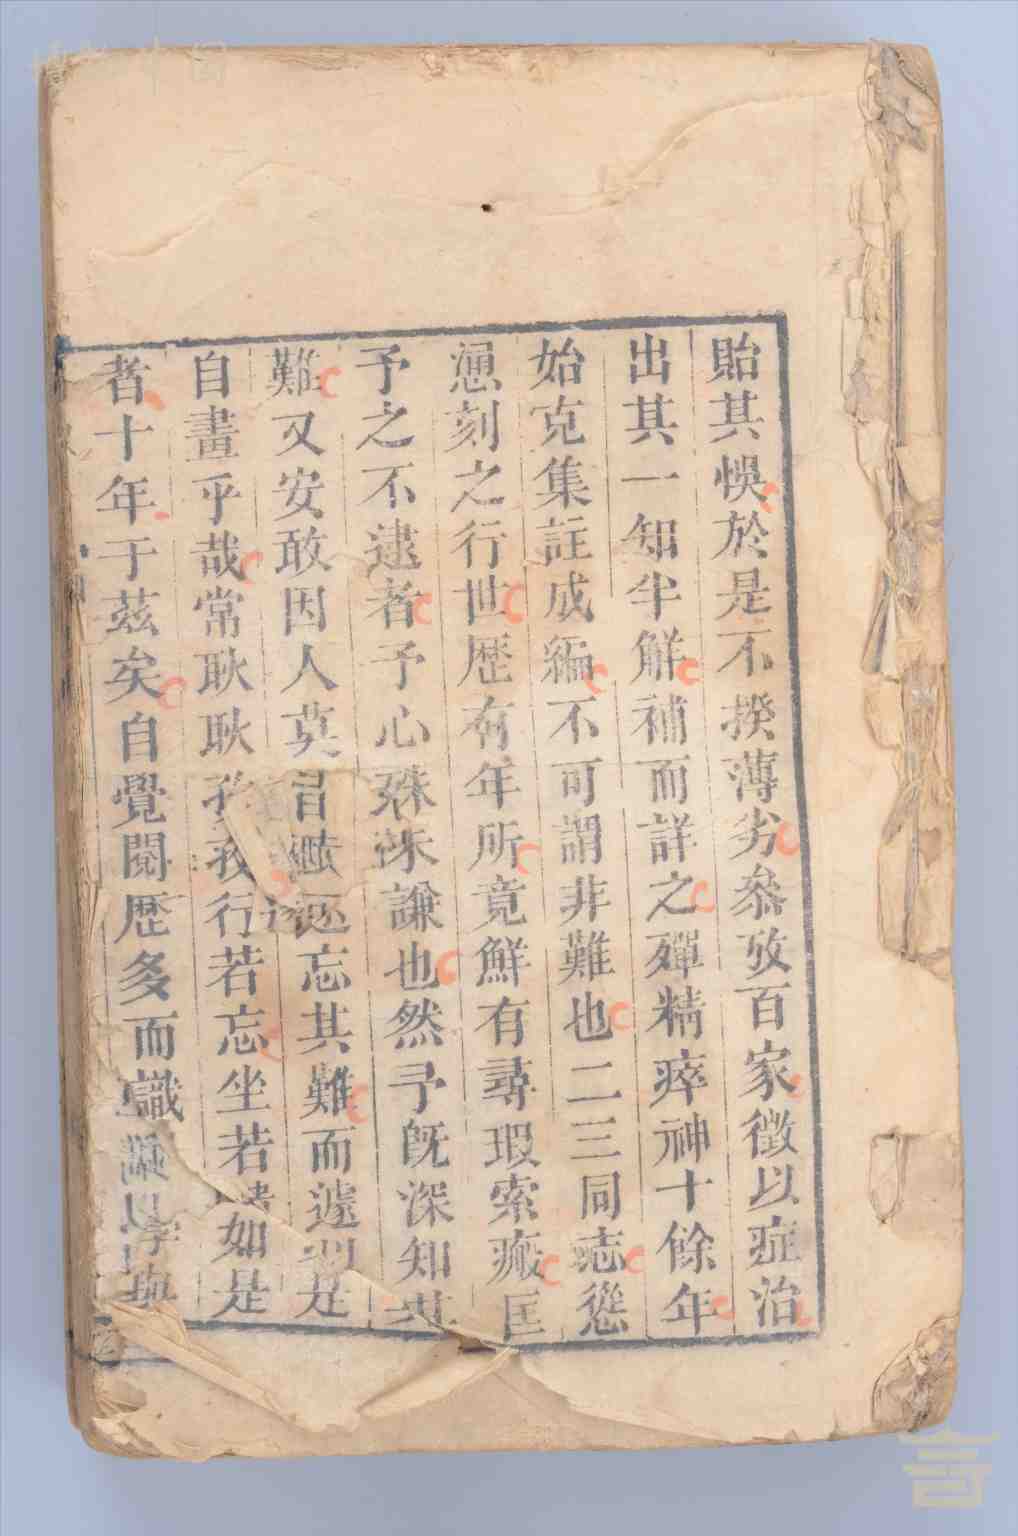 貽其悞於是不揆薄劣叅攷百家徵以症治
出其一知半解補而詳之殫精瘁神十餘年
始克集註成編不可謂非難也二三同志慫
慂刻之行世歷有年所竟鮮有尋瑕索瘢匡
予之不逮者予心殊未謙也然予旣深知其
難又安敢因人莫忘其難而遽是
自畫乎哉常耿耿行若忘坐若如是
者十年于茲矣自覺閱歷多而識